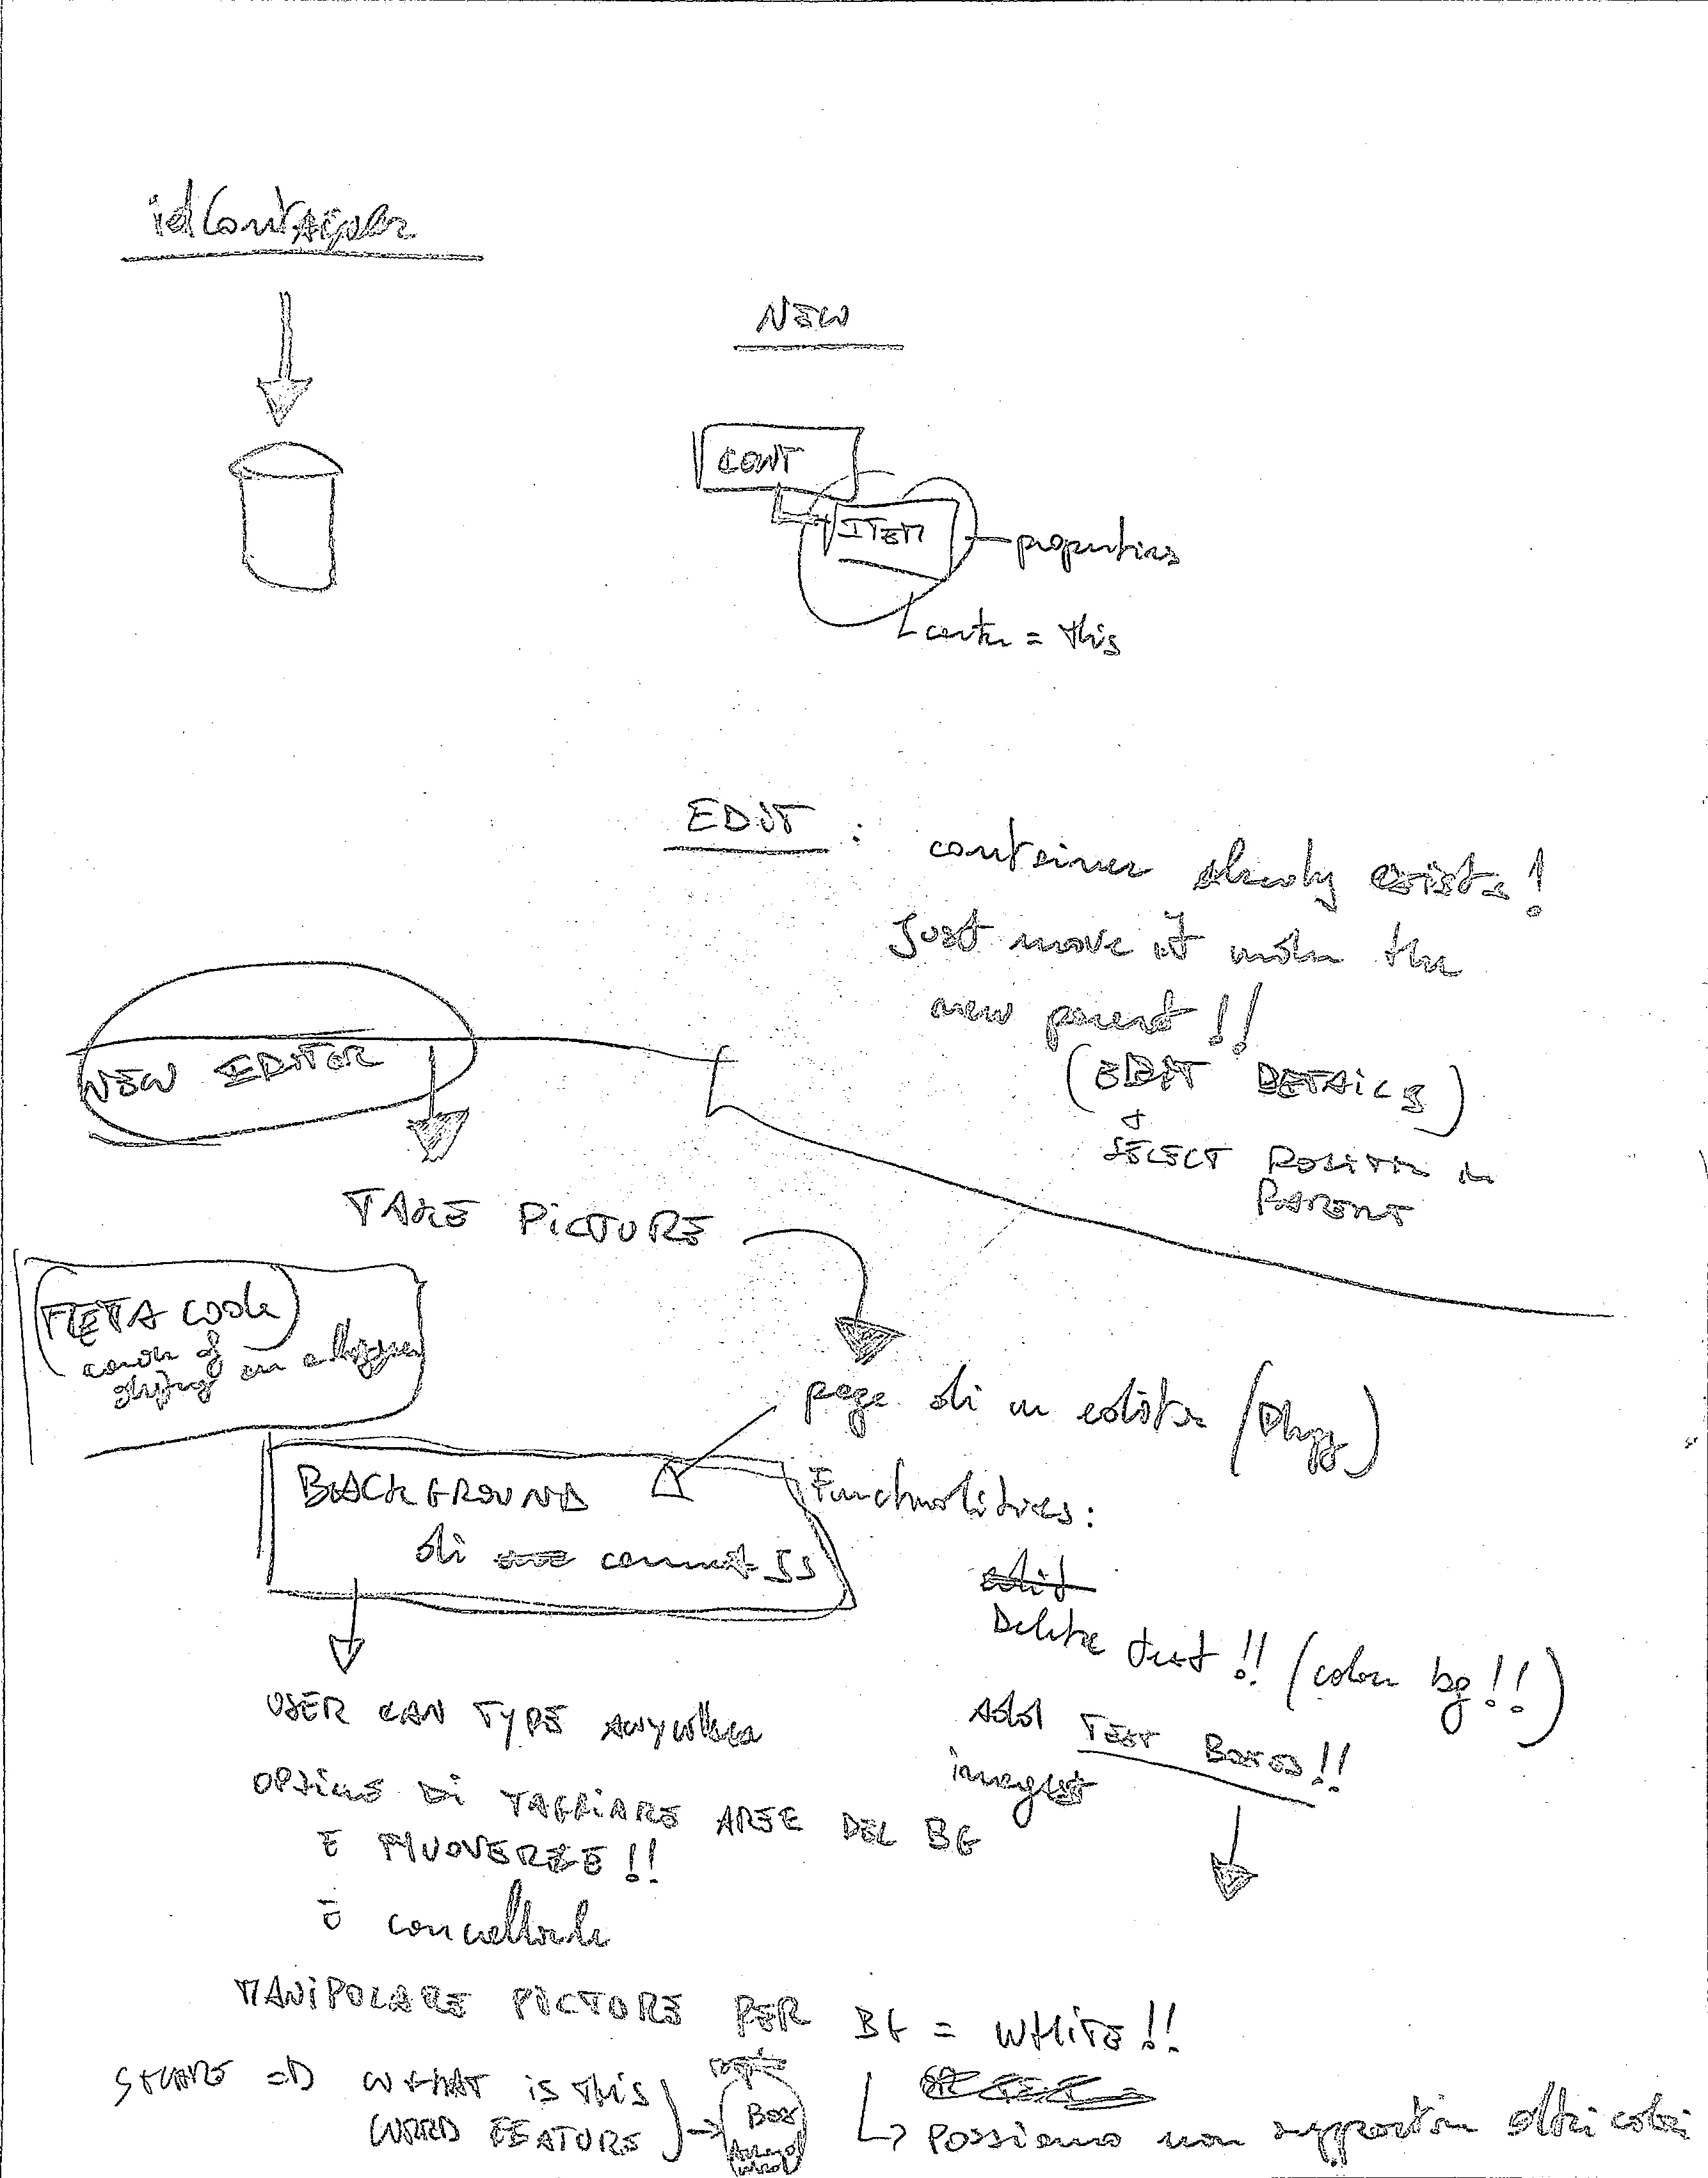 idContainer
NEW
CONT
ITEM
properties
center = this
EDIT :
container already exists!
Just move it under the
new parent!!
(EDIT DETAILS)
+
SELECT POSITION IN
PARENT
NEW EDITOR
TAKE PICTURE
META code
page di un editor
BACKGROUND
di comment
Functionalities:
edit
Delete text!! (color bg!!)
Add TEXT BOXES!!
images
USER CAN TYPE ANYWHERE
OPZIONE DI TAGLIARE AREE DEL BG
E MUOVERLE!!
E cancellarle
MANIPOLARE PICTURE PER BG = WHITE!!
SHARE => WHAT is this
WORD FEATURE
Box
Possiamo non supportare altri colori